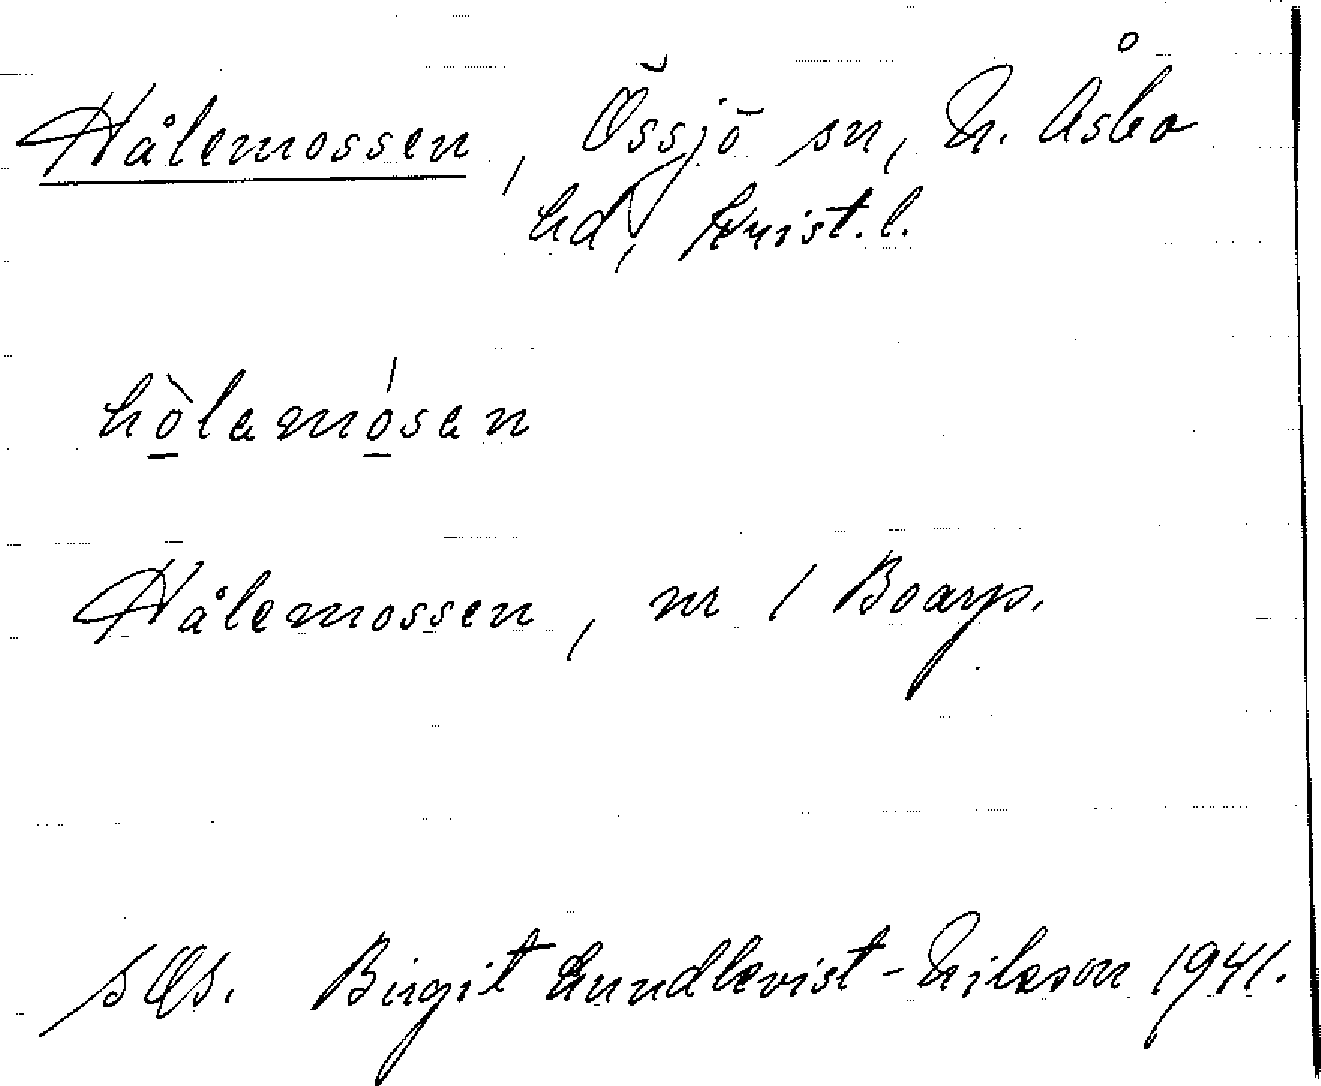 Hålemossen, Össjö sn, N. Åsbo
hd, Krist. l.
hò̱lamó̱san
Hålemossen, nr 1 Boarp.
Birgit Lundkvist-Nilsson 1941.